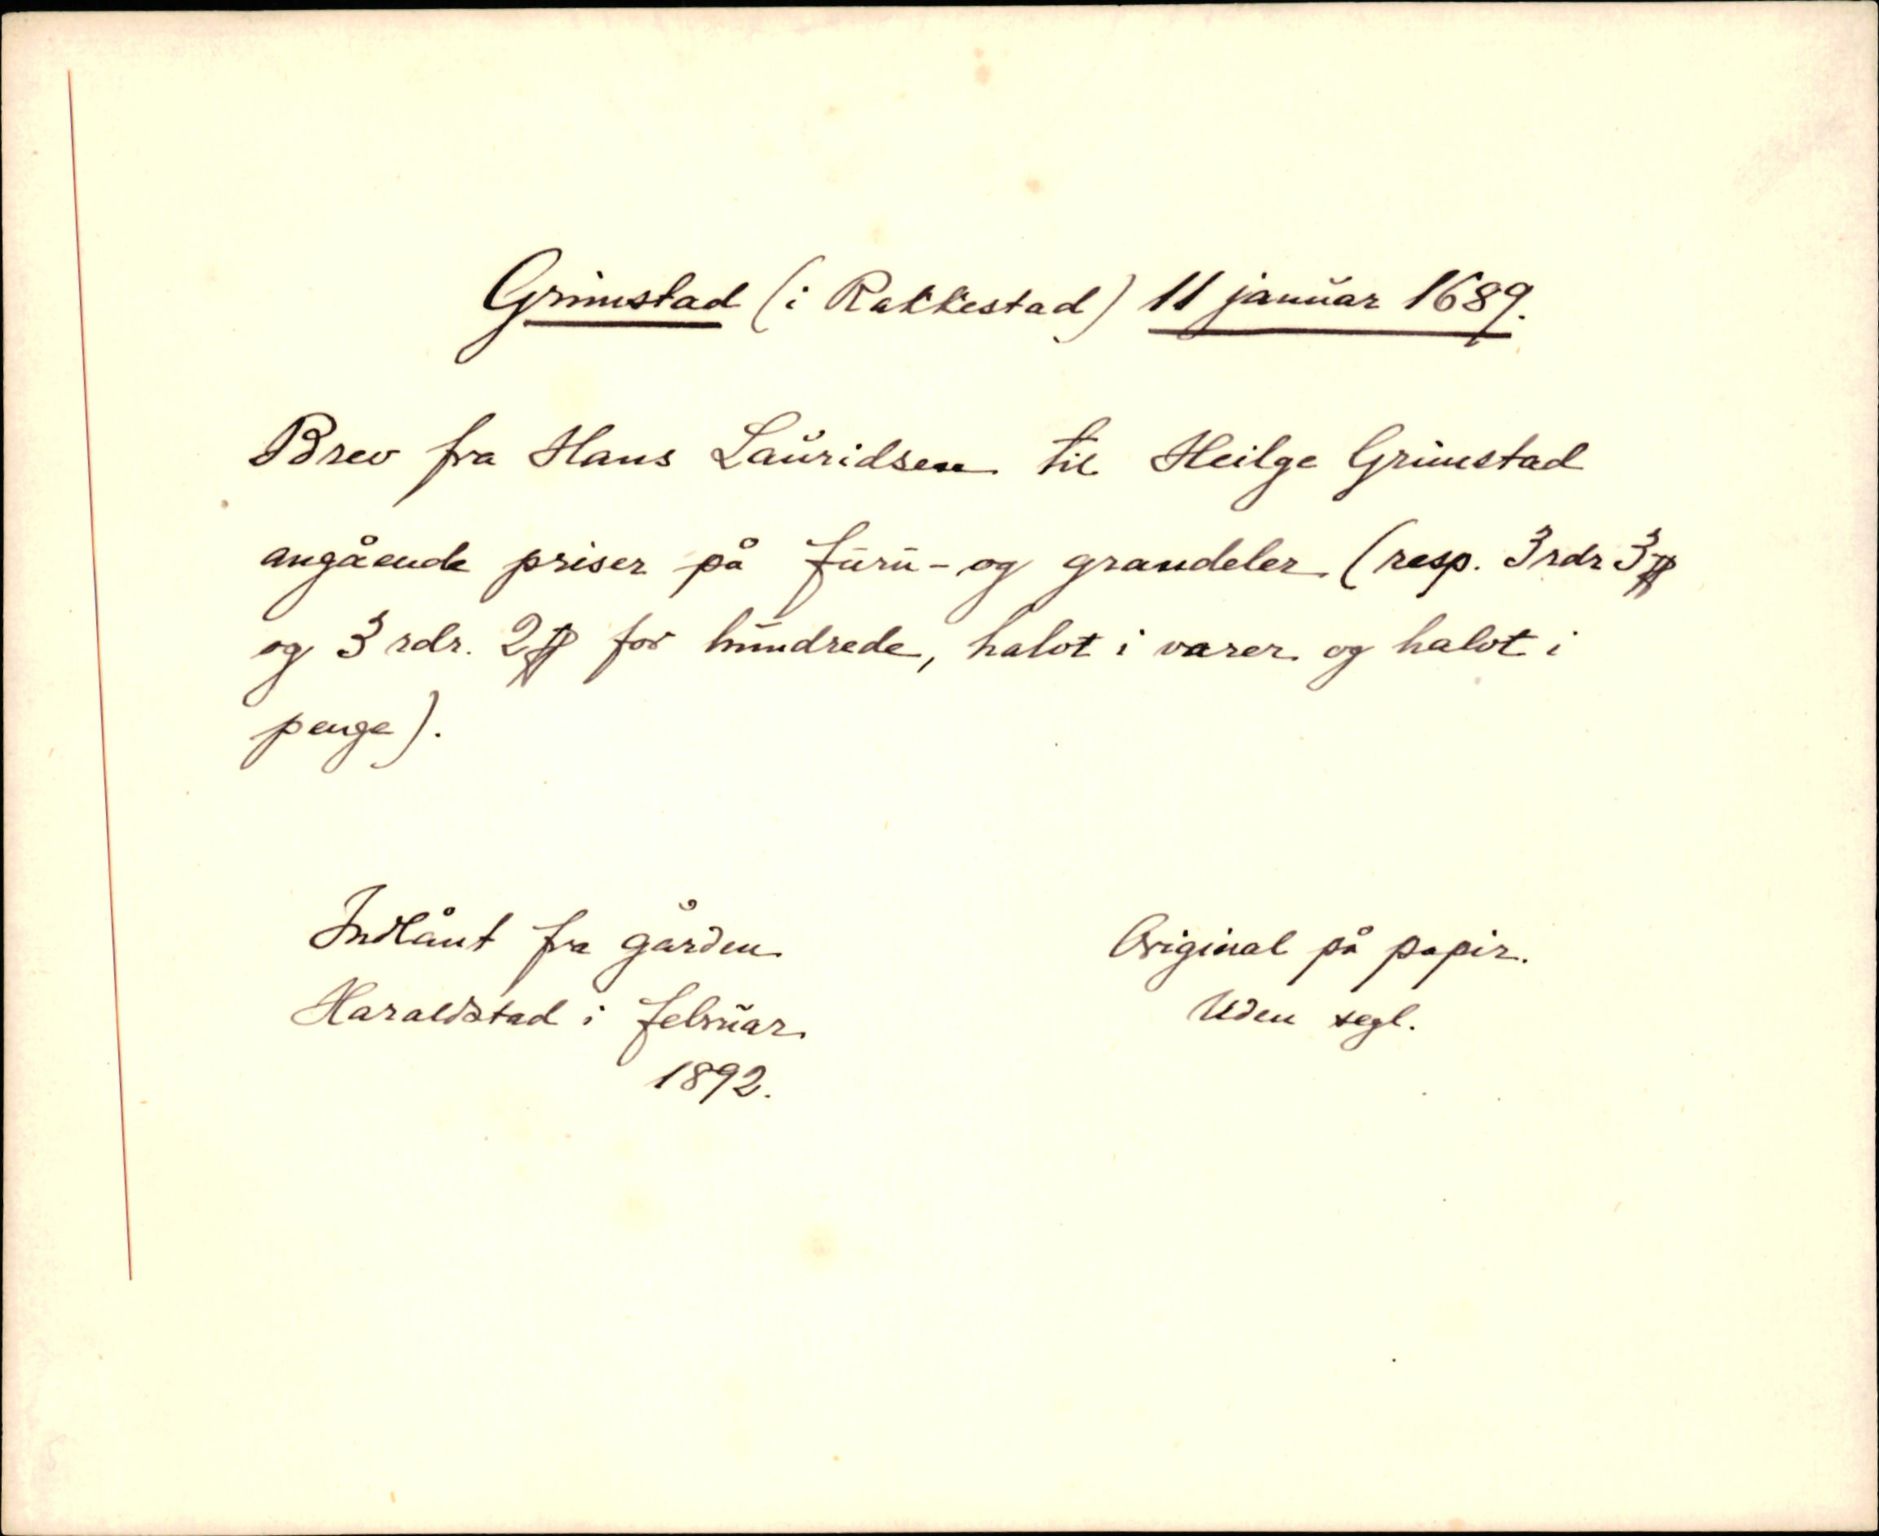 Grimstad (i Rakkestad) 11 januar 1689.
Brev fra Hans Lauridsen til Heilge Grimstad
angående priser på furu- og grandeler (resp. 3 rdr 3 ß
og 3 rdr. 2 ß for hundrede, halvt i varer og halvt i
penge).
Indlånt fra gården
Haraldstad i februar
1892.
Original på papir.
Uden segl.